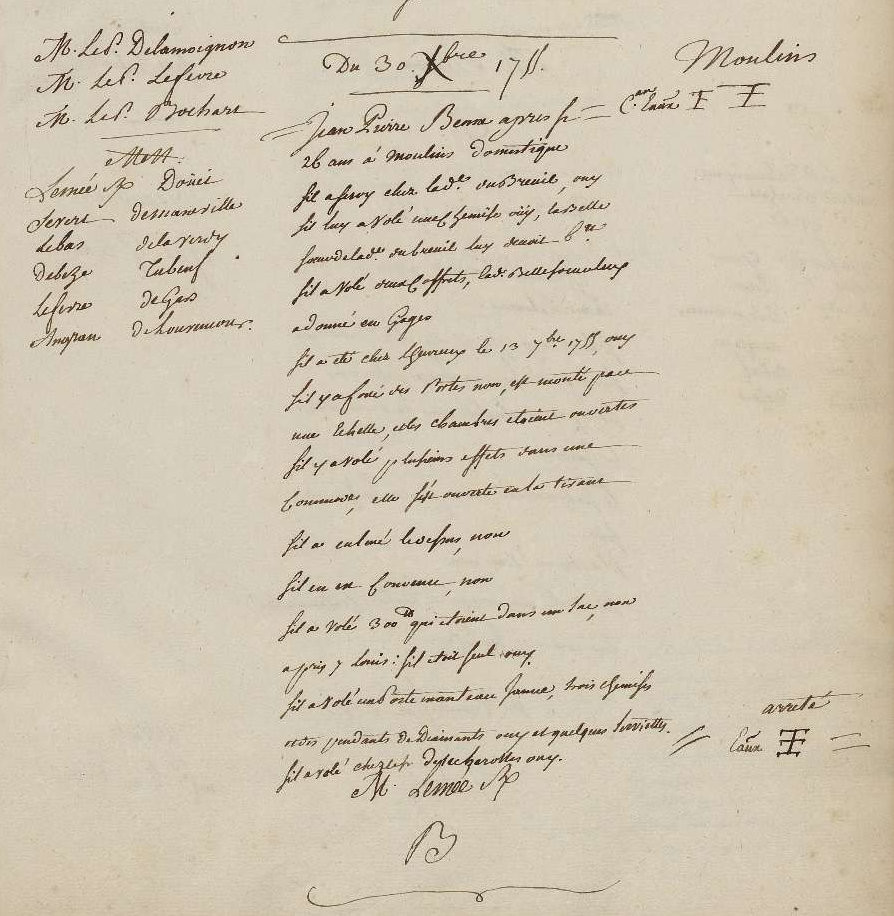 M. Le P. Delamoignon
M. Le P. Lefevre
M. Le P. Bochart
Mess.
Lemée R Doüet
Severt demaneville
Lebas delaverdy
Debeze Tubeuf
Lefevre de Gars
Angran
Du 30 Xbre 1755.
Moulins
Jean Pierre apres p
26 ans à moulins domestique
sil a servy chez lad.e duBreuil, ouy
sil luy a volé une chemise oüy, la Belle
soeur de lad.e dubreuil luy devoit
sil a volé deux Coffrets, lad. Belle soeur les luy
a donné en Gages
sil a eté chez le 13 7bre 1755, ouy
sil y a forcé des Portes non, est monté par
une Echelle, et les chambres etoient ouvertes
sil y a volé plusieurs effets dans une
Commode, elle s'est ouverte en la tirant
sil a enlevé le dessus, non
sil en est Convenu, non
sil a volé 300 qui etoient dans un sac, non
a pris 7 louis: sil etoit seul ouy.
sil a volé un Porte manteau Jaune, trois chemises
et des pendants de Diamants ouy et quelques serviettes.
sil a volé chez le ouy.
M. Lemée R
B
arreté